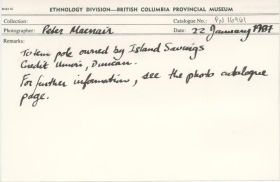 ETHNOLOGY DIVISION—BRITISH COLUMBIA PROVINCIAL MUSEUM
Collection: Catalogue No.: PN 16961
Photographer: Peter Macnair Date: 22 January 1987
Remarks:
Totem pole owned by Island Savings
Credit Union, Duncan.
For further information, see the photo catalogue
page.